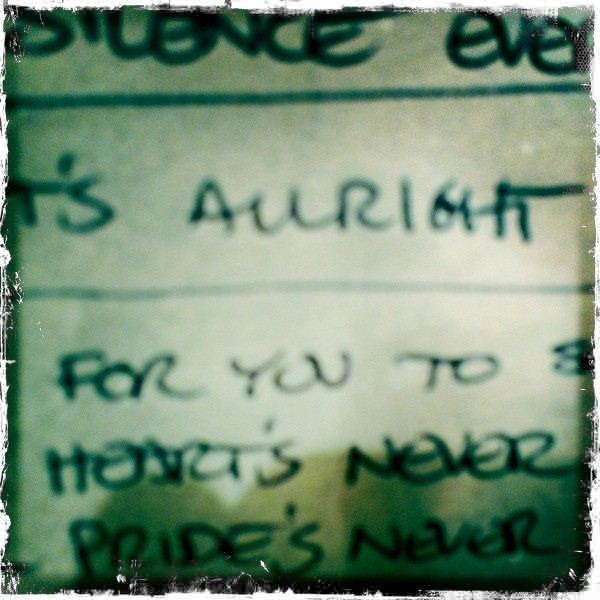 SILENCE EVE
T'S ALLRIGHT
FOR YOU TO
HEART'S NEVER
PRIDE'S NEVER